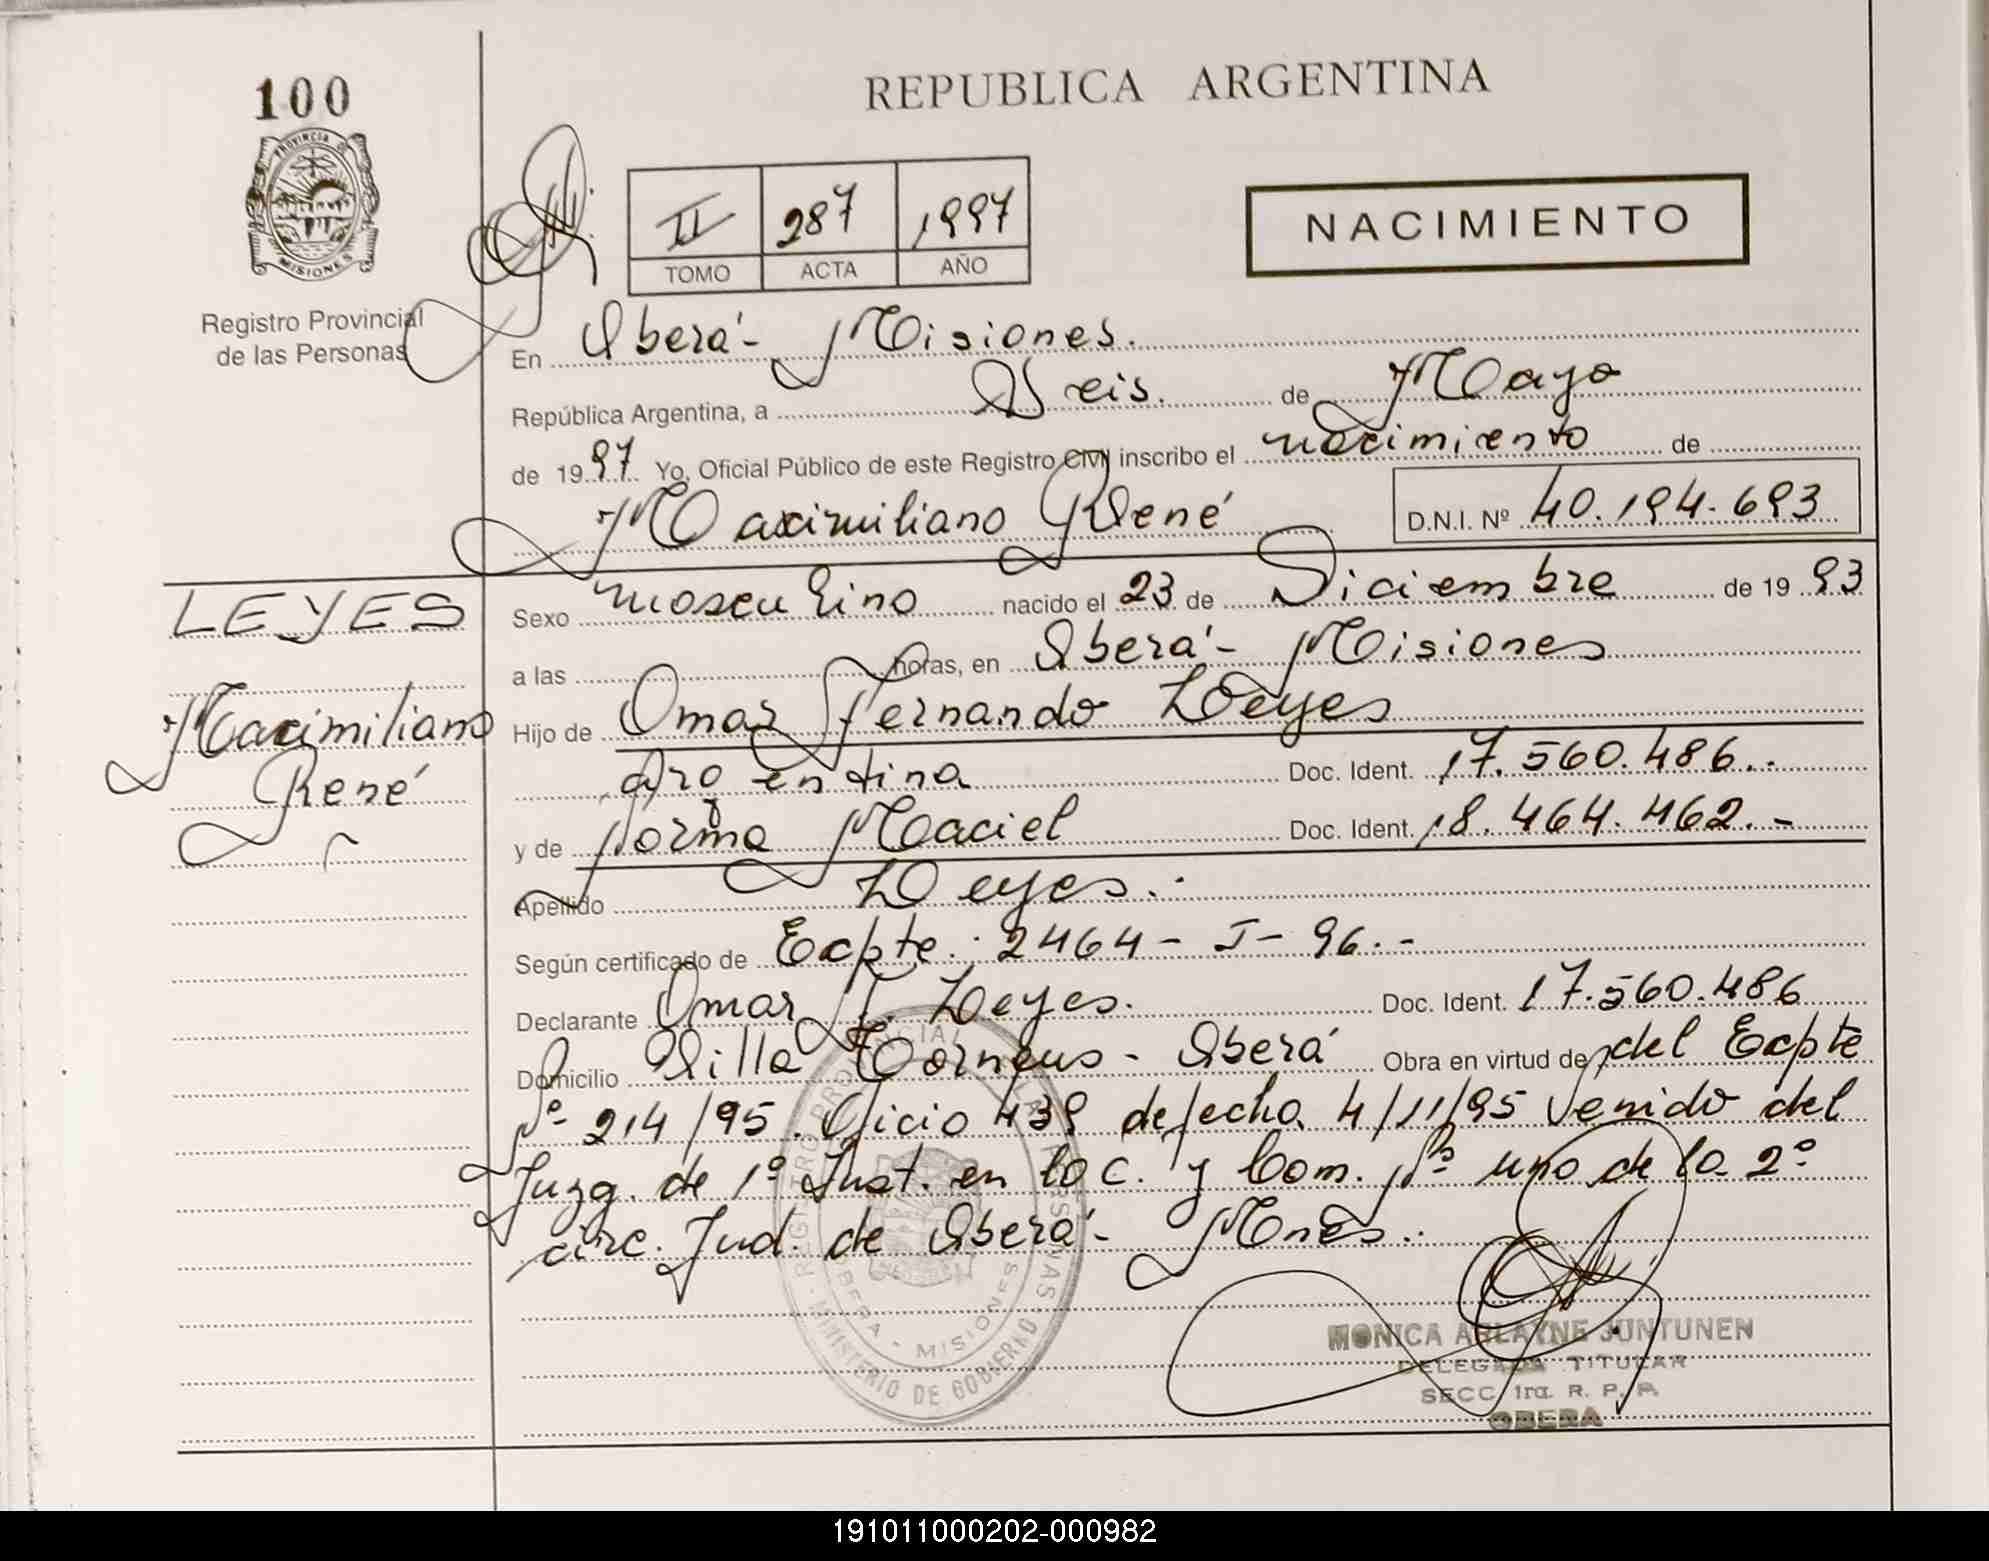 100
REPUBLICA ARGENTINA
PROVINCIA DE
MISIONES
Registro Provincial
de las Personas
II 287 1997
TOMO ACTA AÑO
NACIMIENTO
En Oberá - Misiones.
República Argentina, a Seis. de Mayo
de 1997 Yo, Oficial Público de este Registro Civil inscribo el nacimiento de
Maximiliano René D.N.I. Nº 40.194.693
LEYES
Maximiliano
René
Sexo masculino nacido el 23 de Diciembre de 1993
a las horas, en Oberá - Misiones
Hijo de Omar Fernando Leyes
Argentina Doc. Ident. 17.560.486.-
y de Norma Maciel Doc. Ident. 18.464.462.-
Apellido Leyes.-
Según certificado de Expte. 2464 - I - 96.-
Declarante Omar F. Leyes. Doc. Ident. 17.560.486
Domicilio Villa - Oberá Obra en virtud de del Expte
Nº 214/95. Oficio 439 de fecha 4/11/95 venido del
Juzg. de 1º Inst. en lo C. y Com. Nº uno de la 2º
circ. Jud. de Oberá - Mnes.-
REGISTRO PROVINCIAL DE LAS PERSONAS
MINISTERIO DE GOBIERNO
OBERA - MISIONES
MONICA JUNTUNEN
DELEGADA TITULAR
SECC. 1ra. R. P. P.
OBERA
191011000202-000982